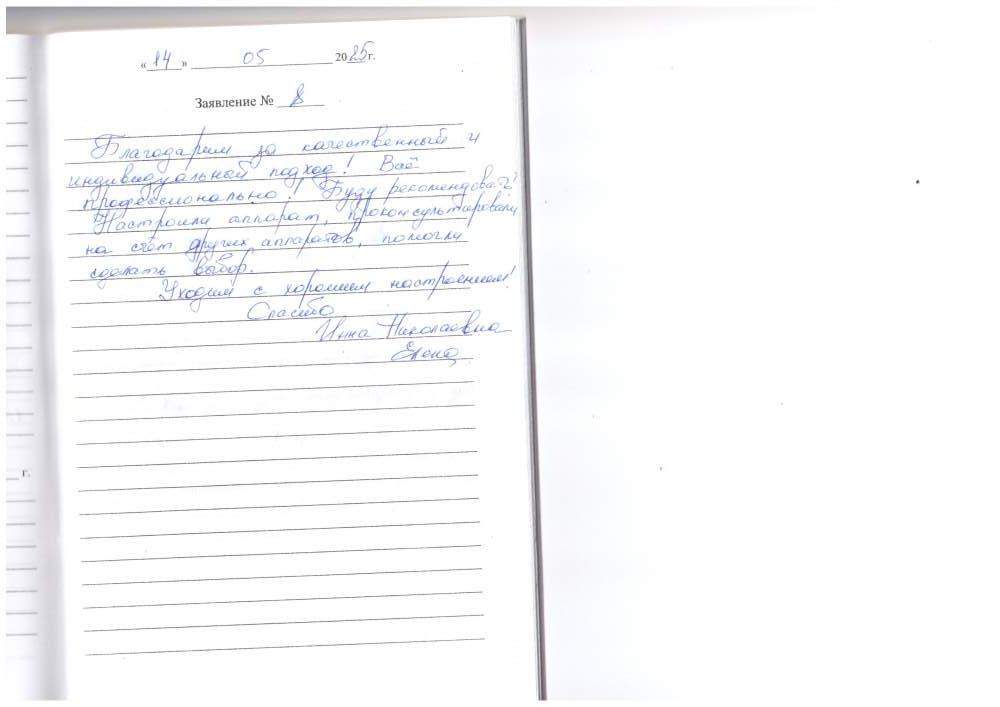 «14» 05 2025 г.
Заявление № 8
Благодарим за качественный и
индивидуальный подход! Всё
профессионально! Буду рекомендовать!
Настроили аппарат, проконсультировали
на счёт других аппаратов, помогли
сделать выбор.
Уходим с хорошим настроением!
Спасибо
Инна Николаевна
Елена
г.